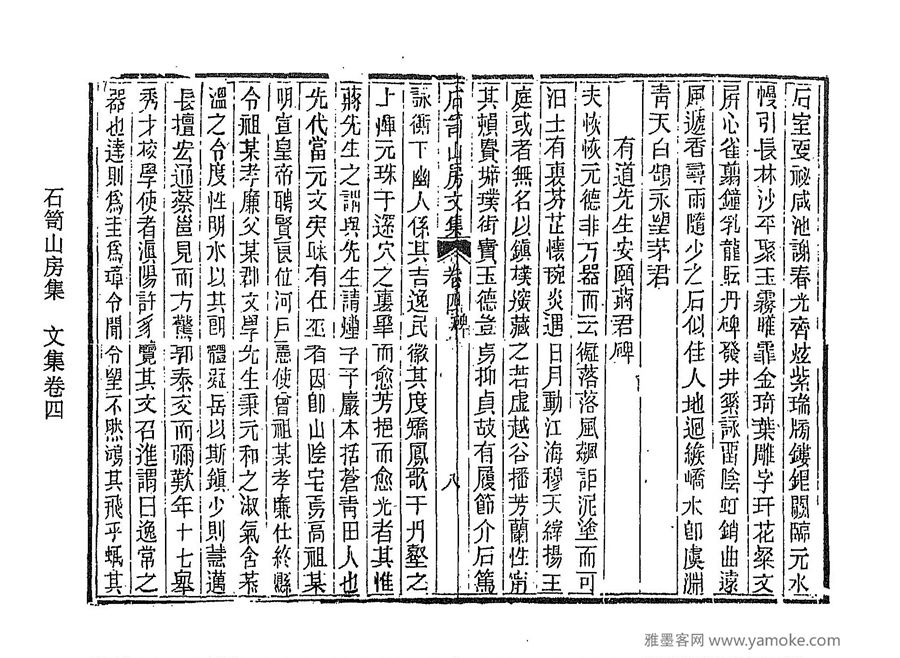 石室耍祕咸池謝春光齊炫紫瑞牓鏤鋰闕臨元水
幔引長林沙平聚玉霧曖霏金琦葉雕字玕花粲文
屏心雀翦鐘乳龍眃丹碑發井綮詠雷陰虹銷曲遠
風遞香尋雨隨少之石似住人地迴緱嶠水卽虞淵
靑天白鵠永望茅君
有道先生安頤蔣君碑
夫恢恢元德非万器而云徙落落風飆詎泥塗而可
汩士有裛芬芷懷琬炎遇日月動江海穆天縡揚王
庭或者無名以鎭樸壙藏之若虛越谷播芳蘭性甯
其頳賁墆璞街賣玉德豈爲抑貞鼓有履節介石篤
石笥山房文集 卷四碑 八
詠衡下幽人係其吉逸民徽其度矯鳳歌于丹壑之
上煇元珠于邃穴之裏畢而愈芳挹而愈光者其惟
蔣先生之謂與先生諱煃字子嚴本括蒼靑田人也
先代當元文宗昧有仕巫者因卽山陰宅焉高祖某
明宣皇帝聘賢良位河戶悳使曾祖某孝廉仕終縣
令祖某孝廉父某郡文學先生秉元和之淑氣含恭
溫之令度性明水以其卽體嶷岳以斯鎭少則譿邁
長壇宏通蔡邕見而方襲郭泰交而彌歎年十七舉
秀才校學使者滇陽許豸覽其文召進謂曰逸常之
器也達則爲圭爲璋令聞令望不然鴻其飛乎螭其
石笥山房集 文集卷四
雅墨客网 www.yamoke.com